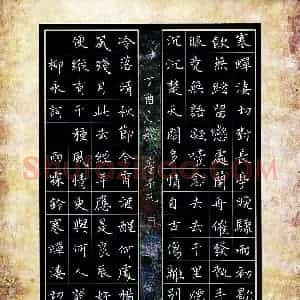 寒蟬淒切對長亭晚驟雨
飲無緒留戀處蘭舟催發
眼竟無語凝噎念去去千里
沉沉楚天闊多情自古傷離別
丁酉
冷落清秋節今宵酒醒何處楊
風殘月此去經年應是良辰
便縱有千種風情更與何人
柳永詞 雨霖鈴 寒蟬淒切